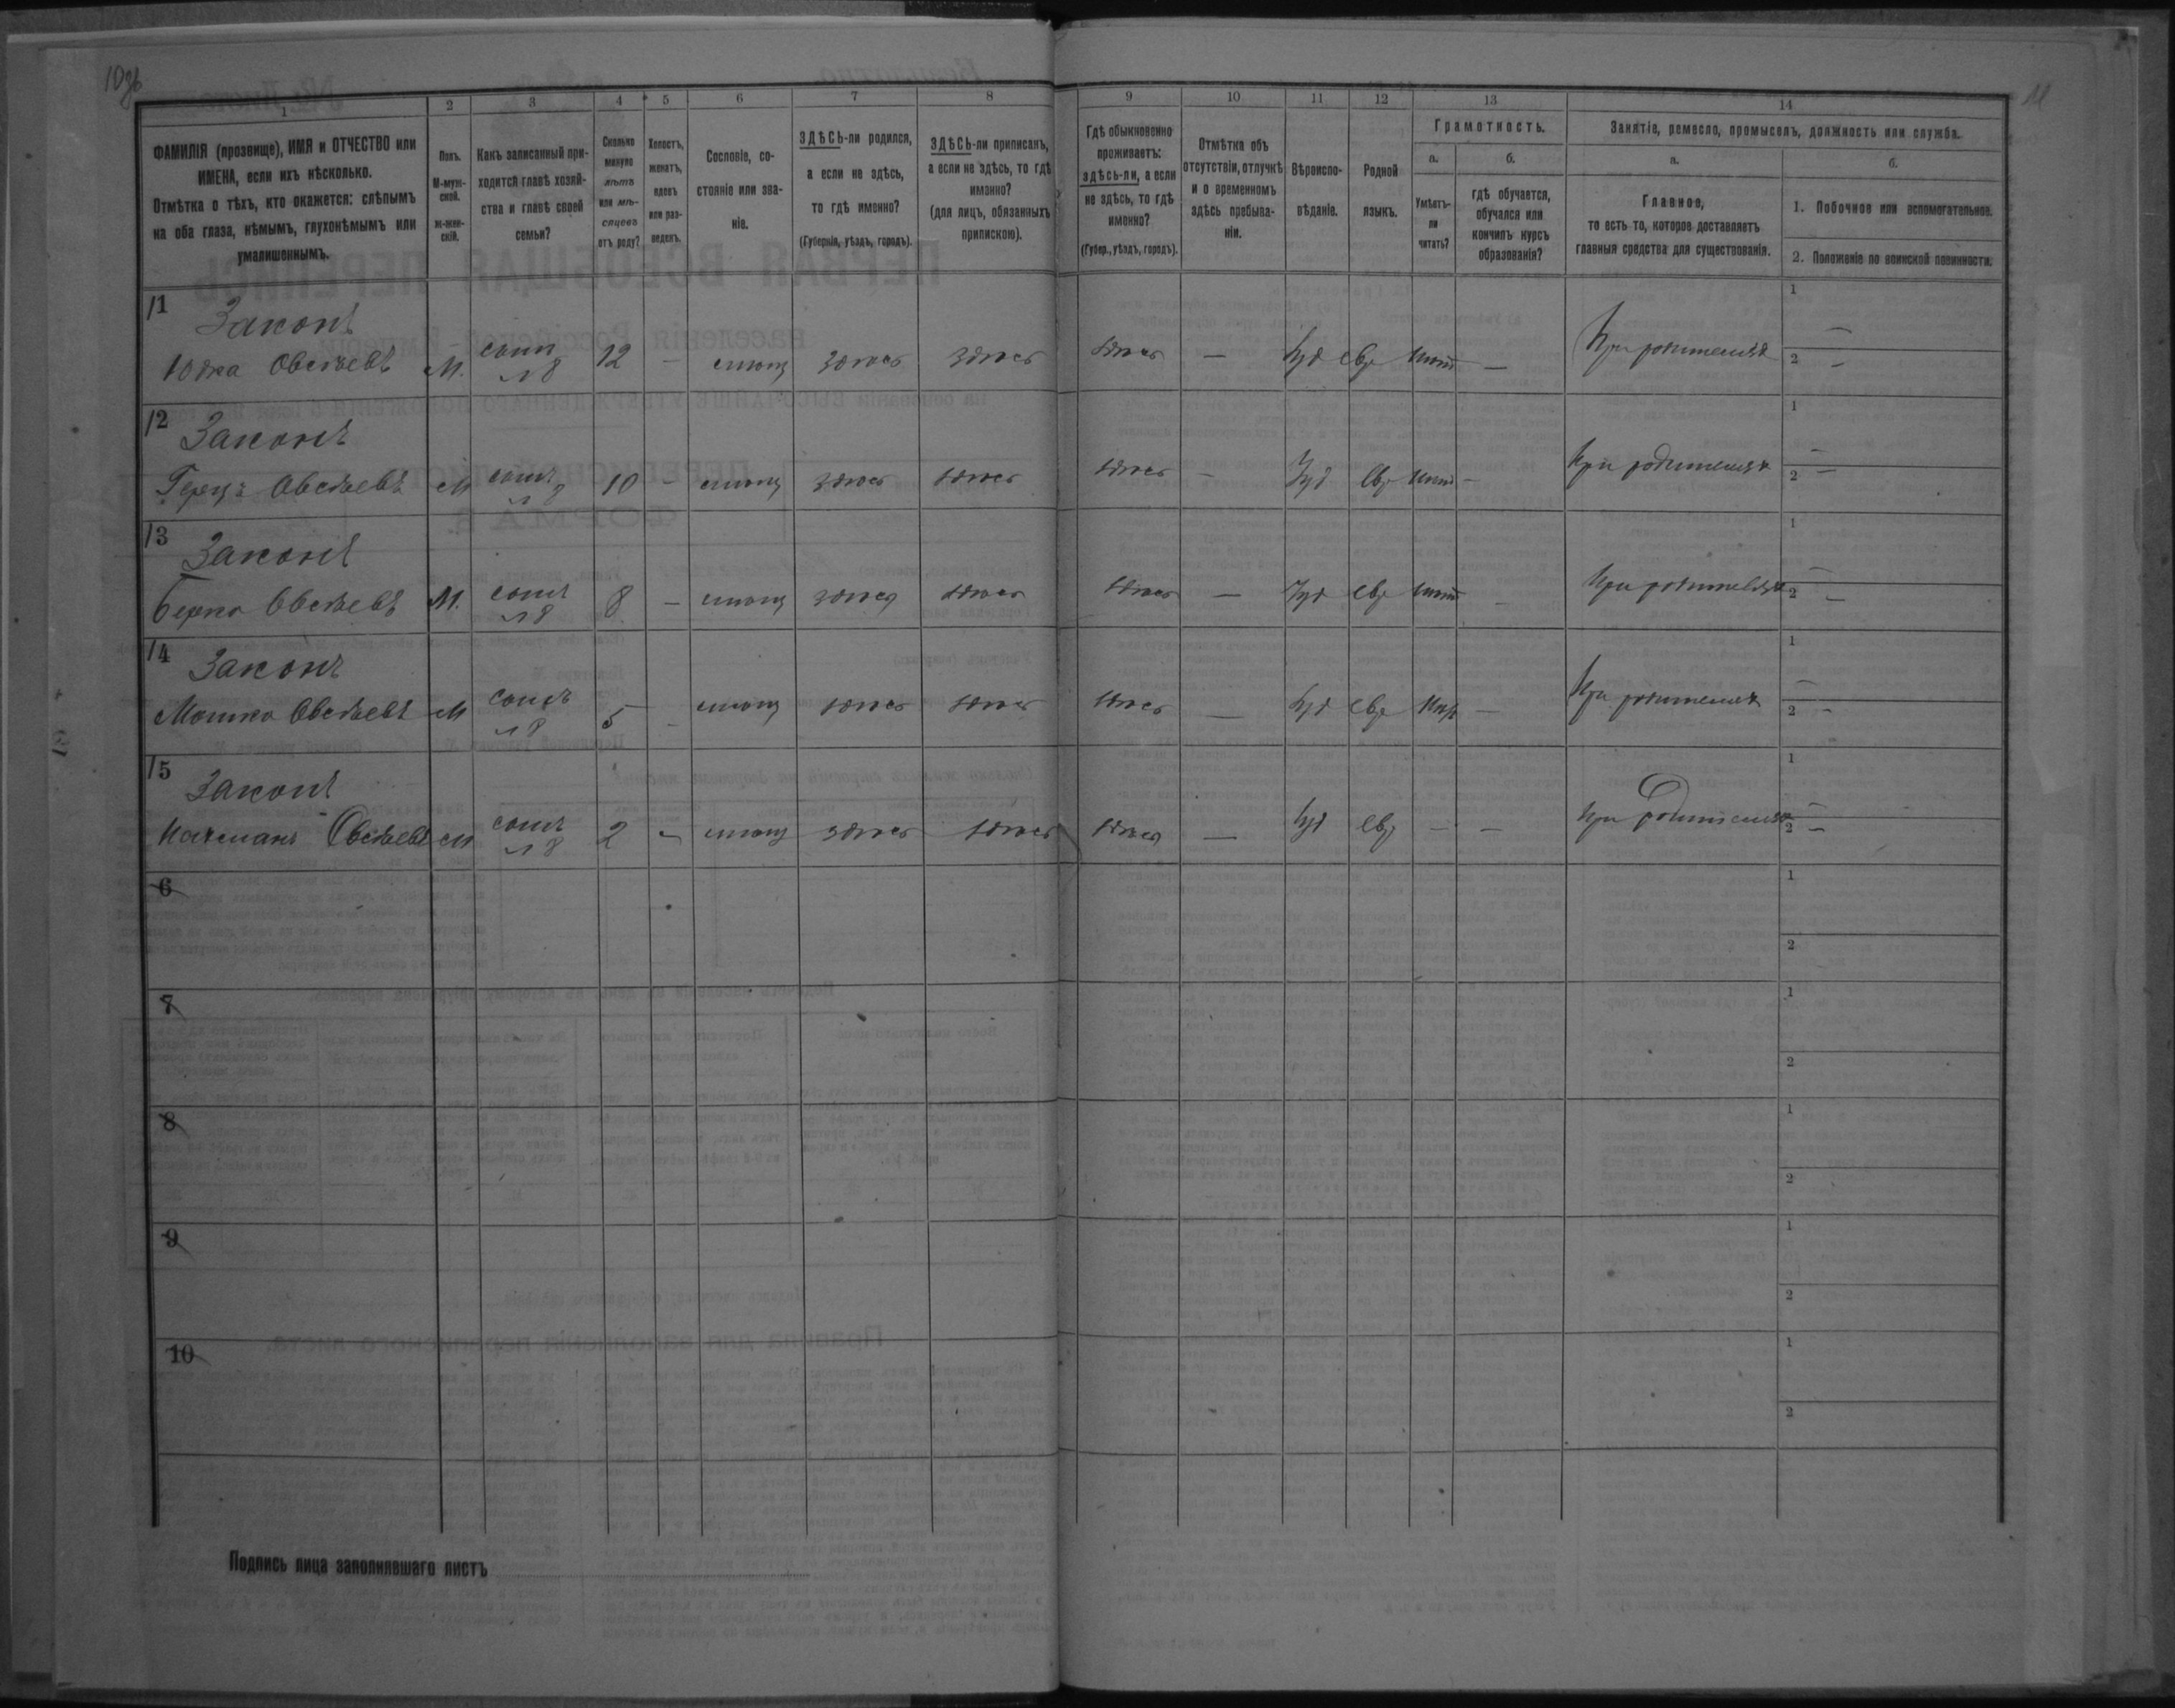 10об
11
1 2 3 4 5 6 7 8 9 10 11 12 13 14
ФАМИЛІЯ (прозвище), ИМЯ и ОТЧЕСТВО или
ИМЕНА, если ихъ нѣсколько.
Отмѣтка о тѣхъ, кто окажется: слѣпымъ
на оба глаза, нѣмымъ, глухонѣмымъ или
умалишеннымъ.
Полъ.
М-муж-
ской.
ж-жен-
скій.
Какъ записанный при-
ходится главѣ хозяй-
ства и главѣ своей
семьи?
Сколько
минуло
лѣтъ
или мѣ-
сяцевъ
отъ роду?
Холостъ,
женатъ,
вдовъ
или раз-
веденъ.
Сословіе, со-
стояніе или зва-
ніе.
ЗДѢСЬ-ли родился,
а если не здѣсь,
то гдѣ именно?
(Губернія, уѣздъ, городъ).
ЗДѢСЬ-ли приписанъ,
а если не здѣсь, то гдѣ
именно?
(для лицъ, обязанныхъ
припискою).
Гдѣ обыкновенно
проживаетъ:
здѣсь-ли, а если
не здѣсь, то гдѣ
именно?
(Губер., уѣздъ, городъ).
Отмѣтка объ
отсутствіи, отлучкѣ
и о временномъ
здѣсь пребыва-
ніи.
Вѣроиспо-
вѣданіе.
Родной
языкъ.
Грамотность.
а.
Умѣетъ-
ли
читать?
б.
гдѣ обучается,
обучался или
кончилъ курсъ
образованія?
Занятіе, ремесло, промыселъ, должность или служба.
а.
Главное,
то есть то, которое доставляетъ
главныя средства для существованія.
б.
1. Побочное или вспомогательное.
2. Положеніе по воинской повинности.
11 Законъ 1
Юдка Овсѣевъ М. сынъ 12 - здѣсь здѣсь здѣсь — Іуд евр — При родителяхъ — 2 -
л 8
12 Законъ 1
Герцъ Овсѣевъ М сынъ 10 - здѣсь здѣсь здѣсь - Іуд евр - При родителяхъ - 2 -
л 8
13 Законъ 1
Берко Овсѣевъ М. сынъ 8 - здѣсь здѣсь здѣсь — Іуд евр - При родителяхъ - 2 -
л 8
14 Законъ 1
Мошко Овсѣевъ М сынъ 5 - здѣсь здѣсь здѣсь — Іуд евр — При родителяхъ - 2 -
л 8
15 Законъ 1
Нахманъ Овсѣевъ М сынъ 2 - здѣсь здѣсь здѣсь — Іуд евр - - При родителяхъ - 2 -
л 8
6 1
2
7 1
2
8 1
2
9 1
2
10 1
2
Подпись лица заполнявшаго листъ